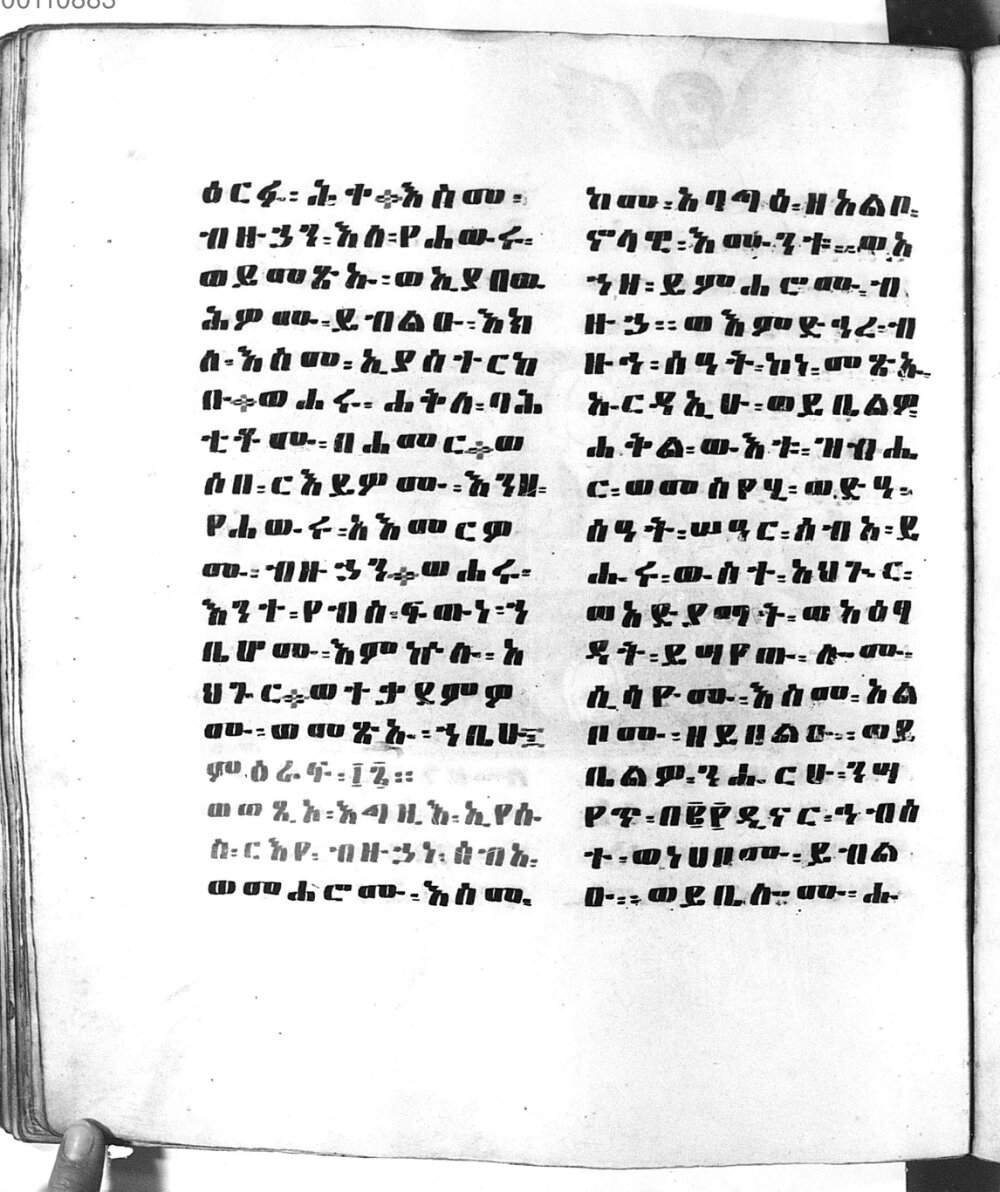 ዕርፉ፡ ሕተ፡እስመ፡
ብዙኃን፡እለ፡የሐውሩ፡
ወይመጽኡ፡ወኢያበው
ሕምሙ፡ይብልዑ፡እክ
ለ፡እስመ፡ኢያስተርከ
ቡ፡ወሐሩ፡ሐቅለ፡ባሕ
ቲቶሙ፡በሐመር፡ወ
ሶበ፡ርእይዎሙ፡እንዘ፡
የሐውሩ፡አእመርዎ
ሙ፡ብዙኃን፡ወሐሩ፡
እንተ፡የብስ፡ፍውነ፡ን
ቢሆሙ፡እምኵሉ፡አ
ህጉር፡ወተቃደምዎ
ሙ፡ወመጽኡ፡ኀቤሁ፡
ምዕራፍ፡፲፯፡፡
ወወፂኦ፡እግዚእ፡ኢየሱ
ስ፡ርእየ፡ብዙኃነ፡ሰብአ፡
ወመሐሮሙ፡እስመ፡
ከመ፡አባግዕ፡ዘአልቦ፡
ኖላዊ፡እሙንቱ፡፡ወአ
ኀዘ፡ይምሐሮሙ፡ብ
ዙኃ፡፡ወእምድኅረ፡ብ
ዙኅ፡ሰዓት፡ከነ፡መጽኡ፡
አርዳኢሁ፡ወይቤልዎ
ሐቅል፡ውእቱ፡ዝብሔ
ር፡ወመስየሂ፡ወድኃ፡
ሰዓት፡ሠዓር፡ሰብአ፡ይ
ሐሩ፡ውስተ፡አህጉር፡
ወአድያማት፡ወአዕፃ
ዳት፡ይሣየጡ፡ሎሙ፡
ሲሳዮሙ፡እስመ፡አል
ቦሙ፡ዘይበልዑ፡፡ወይ
ቤልዎ፡ንሑርሁ፡ንሣ
የጥ፡በ፪፻ዲናር፡ኅብስ
ተ፡ወነሀቦሙ፡ይብል
ዑ፡፡ወይቤሎሙ፡ሑ